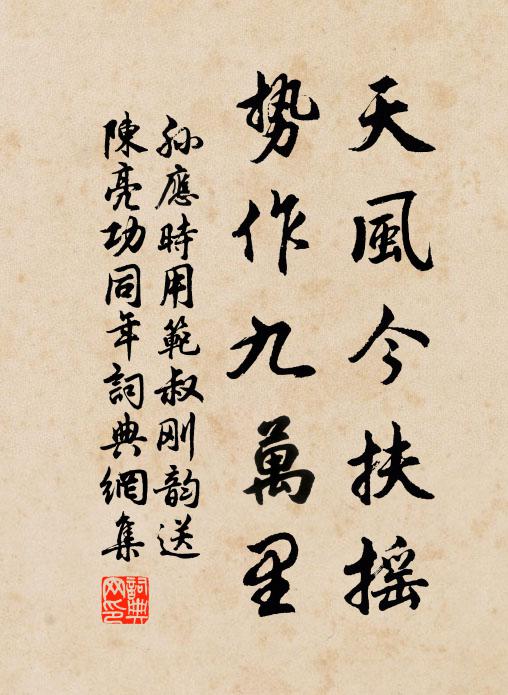 天風今扶摇
势作九萬里
孙應時用範叔刚韵送
陳亮功同年詞典網集
詞典
网印